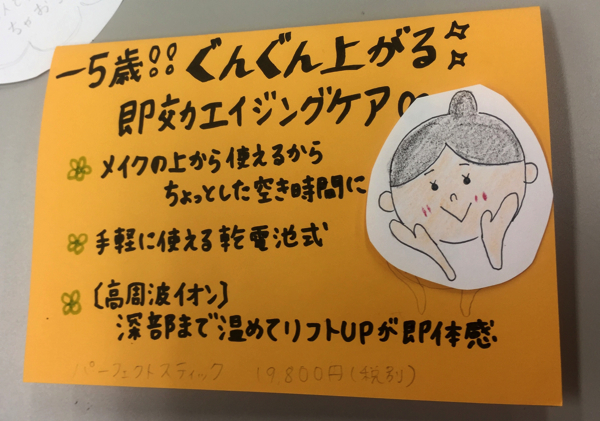 ー5歳!! ぐんぐん上がる
即効エイジングケア
メイクの上から使えるから
ちょっとした空き時間に
手軽に使える乾電池式
〔高周波イオン〕
深部まで温めてリフトUPが即体感
パーフェクトスティック 19,800円(税別)